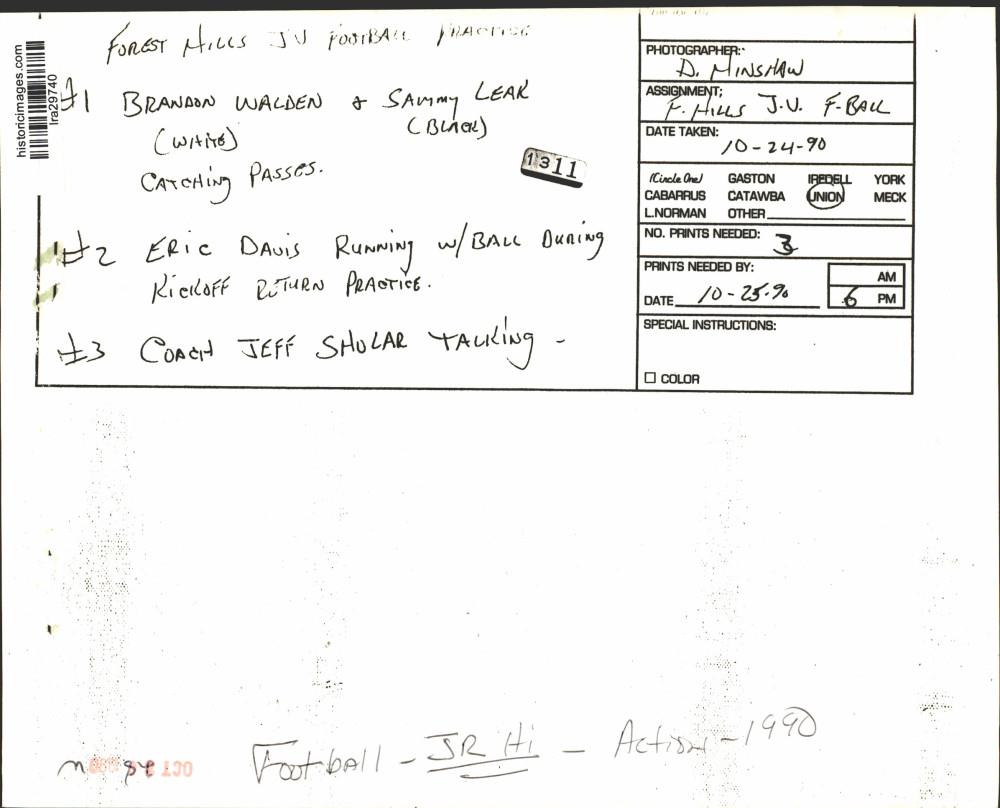 FOREST HILLS JV FOOTBALL PRACTICE
#1 BRANDON WALDEN & SAMMY LEAK
(WHITE) (BLACK)
CATCHING PASSES.
1311
#2 ERIC DAVIS RUNNING W/BALL DURING
KICKOFF RETURN PRACTICE.
#3 COACH JEFF SHOLAR TALKING -
historicimages.com
lra29740
PHOTOGRAPHER:
D. HINSHAW
ASSIGNMENT;
F. HILLS J.V. F-BALL
DATE TAKEN:
10-24-90
(Circle One) GASTON IREDELL YORK
CABARRUS CATAWBA UNION MECK
L.NORMAN OTHER
NO. PRINTS NEEDED: 3
PRINTS NEEDED BY:
AM
DATE 10-25-90 6 PM
SPECIAL INSTRUCTIONS:
COLOR
Football - JR Hi - Action - 1990
OCT